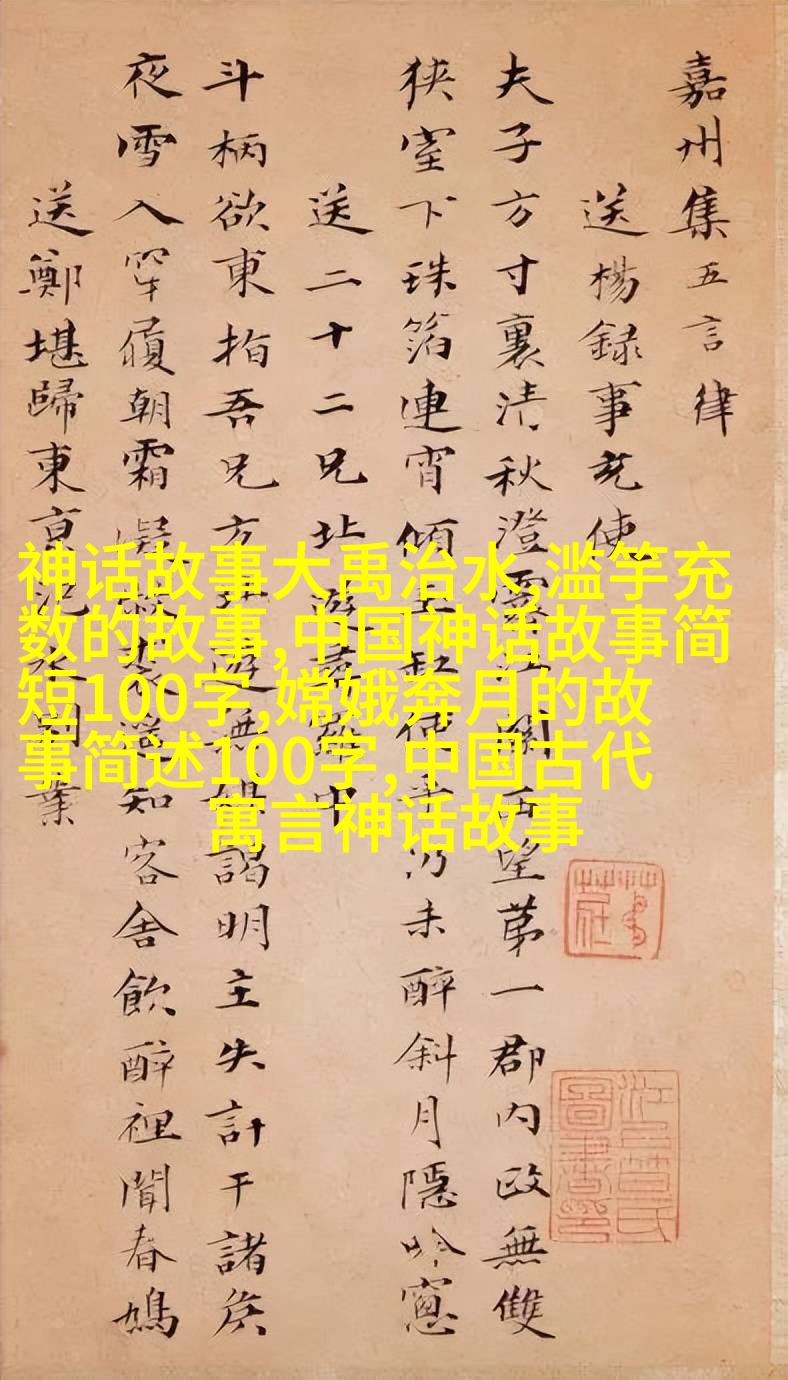 嘉州集五言律
送楊録事充使
夫子方寸裏清秋澄霽江關西望第一郡内政無雙
狹室下珠箔連宵傾玉缸使乎仍未醉斜月隱吟窓
送二十二兄北遊尋羅中
斗柄欲東指吾兄方北遊無媒謁明主失計干諸矦
夜雪入穿履朝霜凝敝裘遙知客舍飲醉裡聞春鳩
送鄭堪歸東京汜水別業
神话故事大禹治水,滥竽充
数的故事,中国神话故事简
短100字,嫦娥奔月的故
事简述100字,中国古代
寓言神话故事